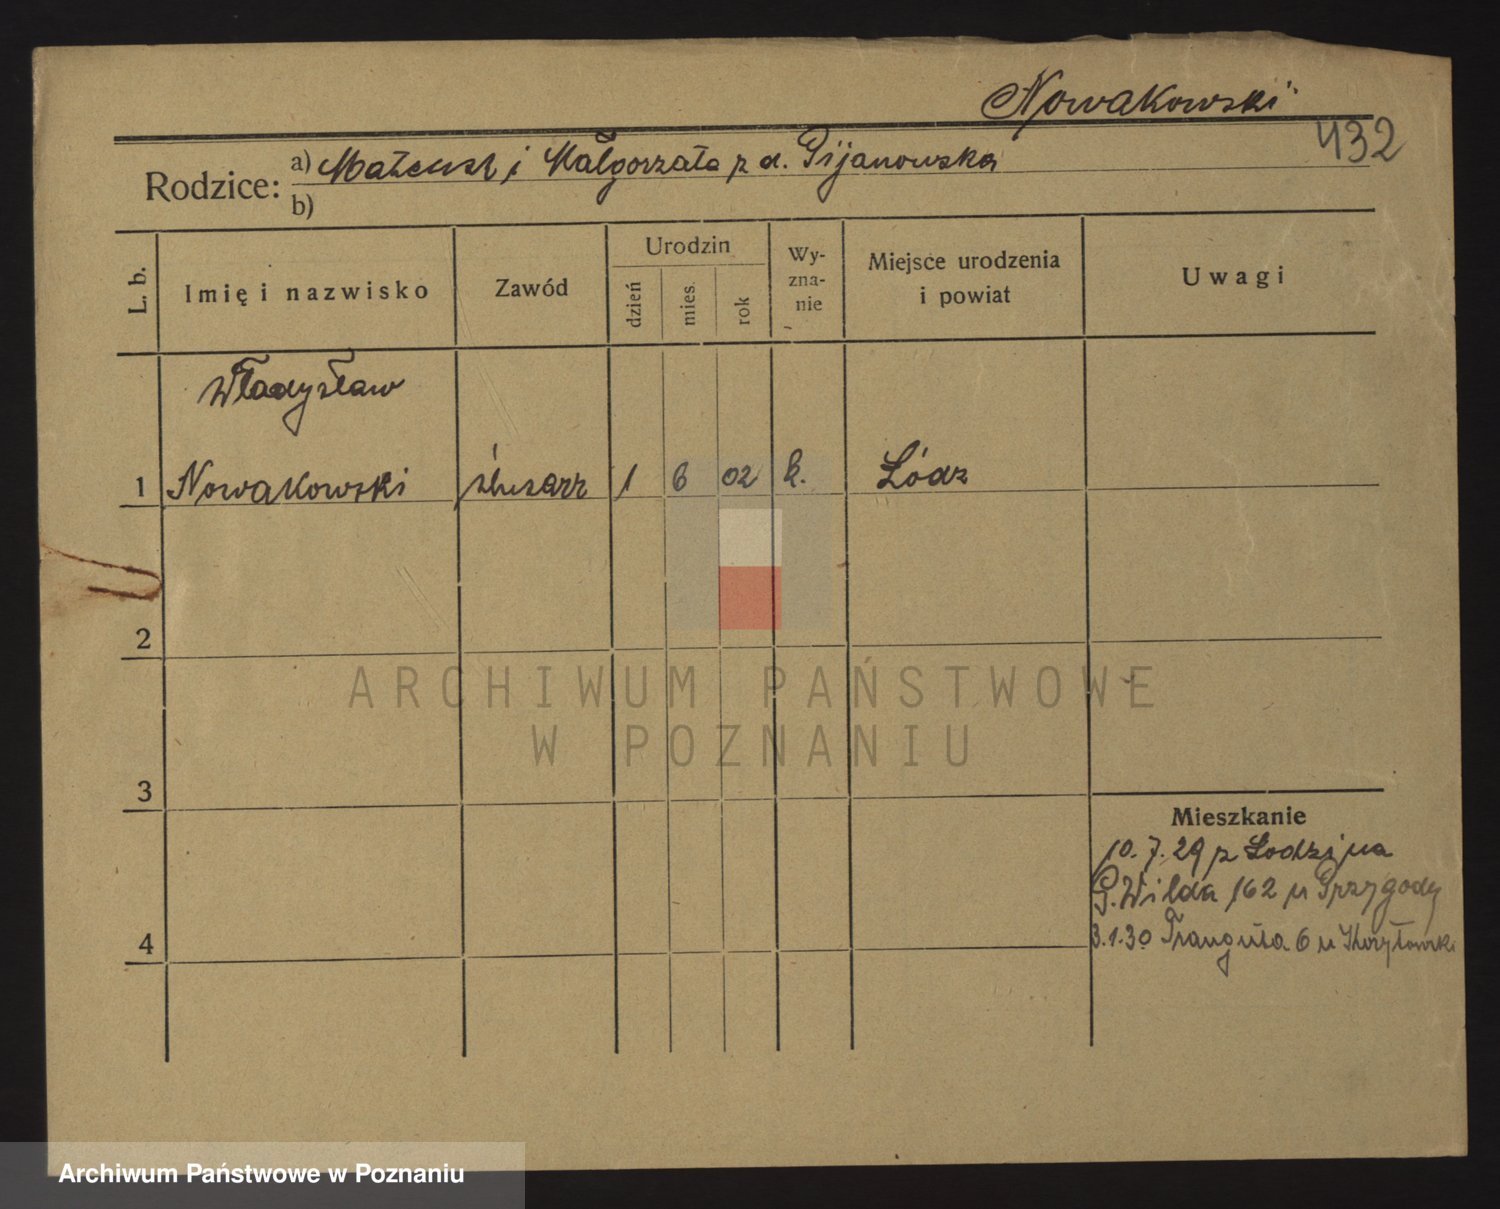 Nowakowski
432
Rodzice: a) Mateusz i Małgorzata z d. Pijanowska
b)
L. b. Imię i nazwisko Zawód Urodzin dzień mies. rok Wy-zna-nie Miejsce urodzenia i powiat Uwagi
Władysław
1 Nowakowski ślusarz 1 6 02 k. Łódz
2
ARCHIWUM PAŃSTWOWE
W POZNANIU
3
Mieszkanie
10. 7. 29 z Łodzi na
G. Wilda 162 u Przygody
4
3.1.30 Trauguta 6 u
Archiwum Państwowe w Poznaniu